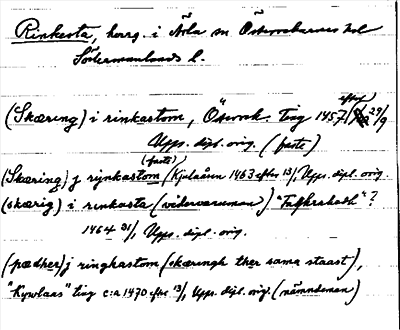 Rinkesta, herrg. i Ärla sn Österrekarnes hd
Södermanlands l.
(Skæring) i rinkastom, Österrek. ting 1457 efter 29/9
Upps. dipl. orig. (faste)
(faste)
(Skæring) j rynkastom (Kjulaåsen 1463 efter 13/1, Upps. dipl. orig.
(skærig) i rinkasta (vederværuman)
1464 31/1, Upps. dipl. orig.
(pædher) j ringhastom (skæringh ther sama staast),
"Kywlaas" ting c:a 1470 efter 13/1, Upps. dipl. orig. (nämndeman)